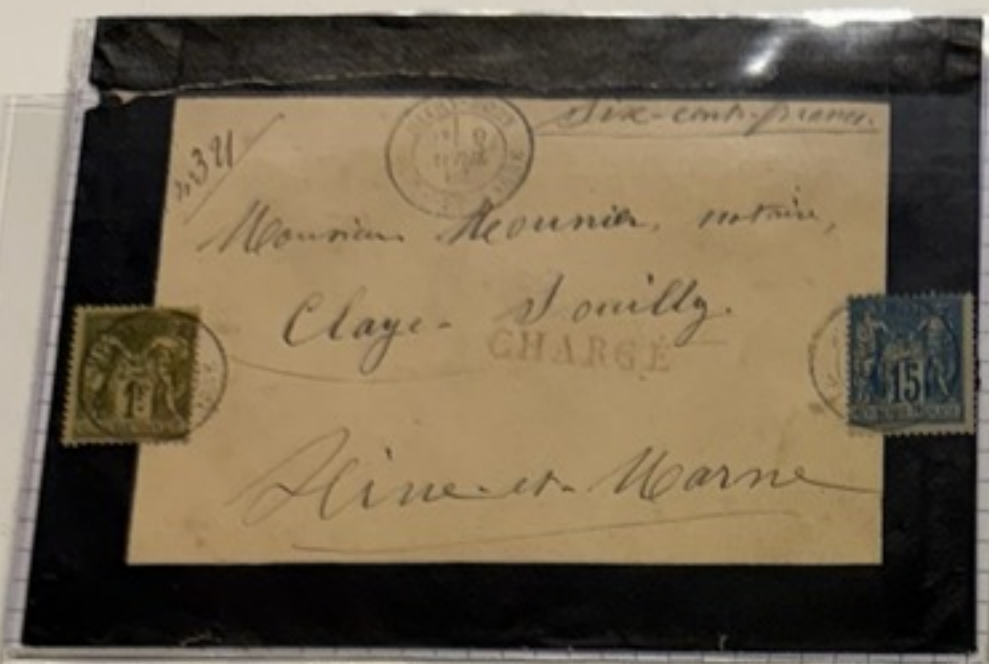 Six-cents-francs.
321
Monsieur Mounier, notaire,
Claye-Souilly.
CHARGÉ
Seine-et-Marne
1F
15